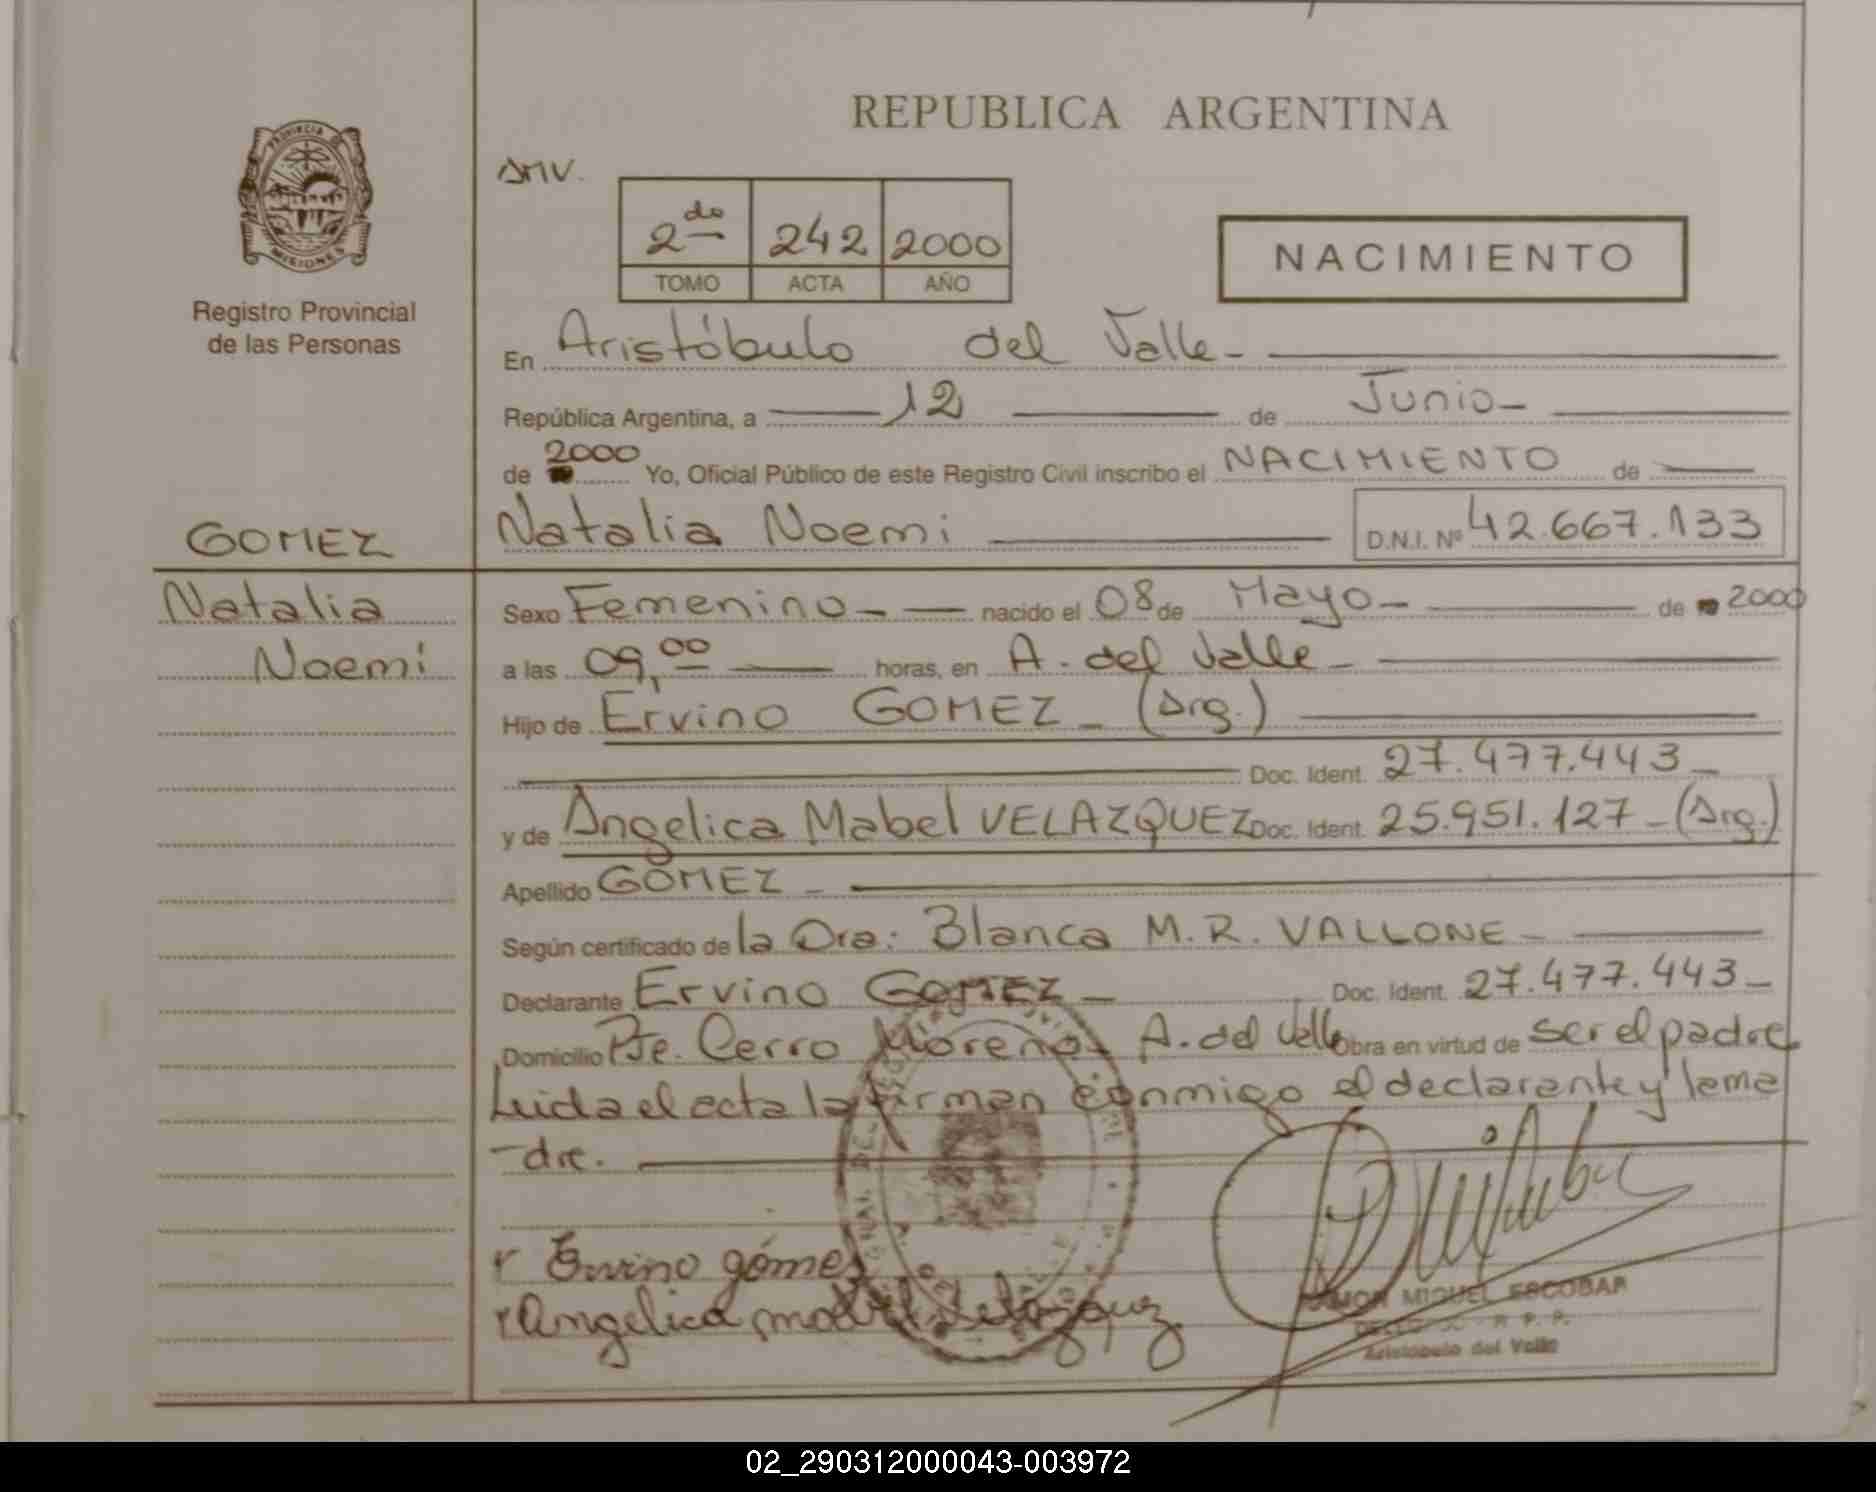 REPUBLICA ARGENTINA
PROVINCIA DE
MISIONES
Registro Provincial
de las Personas
2do 242 2000
TOMO ACTA AÑO
NACIMIENTO
En Aristóbulo del Valle-
República Argentina, a 12 de Junio-
de 2000 Yo, Oficial Público de este Registro Civil inscribo el NACIMIENTO de
GOMEZ
Natalia Noemi
Natalia Noemi D.N.I. Nº 42.667.133
Sexo Femenino- nacido el 08 de Mayo- de 2000
a las 09,00 horas, en A. del Valle-
Hijo de Ervino GOMEZ - (Arg.)
Doc. Ident. 27.477.443-
y de Angelica Mabel VELAZQUEZ Doc. Ident. 25.951.127-(Arg.)
Apellido GOMEZ -
Según certificado de la Dra: Blanca M. R. VALLONE -
Declarante Ervino GOMEZ - Doc. Ident. 27.477.443-
Domicilio Pje. Cerro Moreno- A. del Valle Obra en virtud de ser el padre
Leida el acta la firman conmigo el declarante y la ma
-dre.
Ervino gómez
Angelica mabel Velazquez
RAMON MIGUEL ESCOBAR
R. P. P.
Aristobulo del Valle
02_290312000043-003972